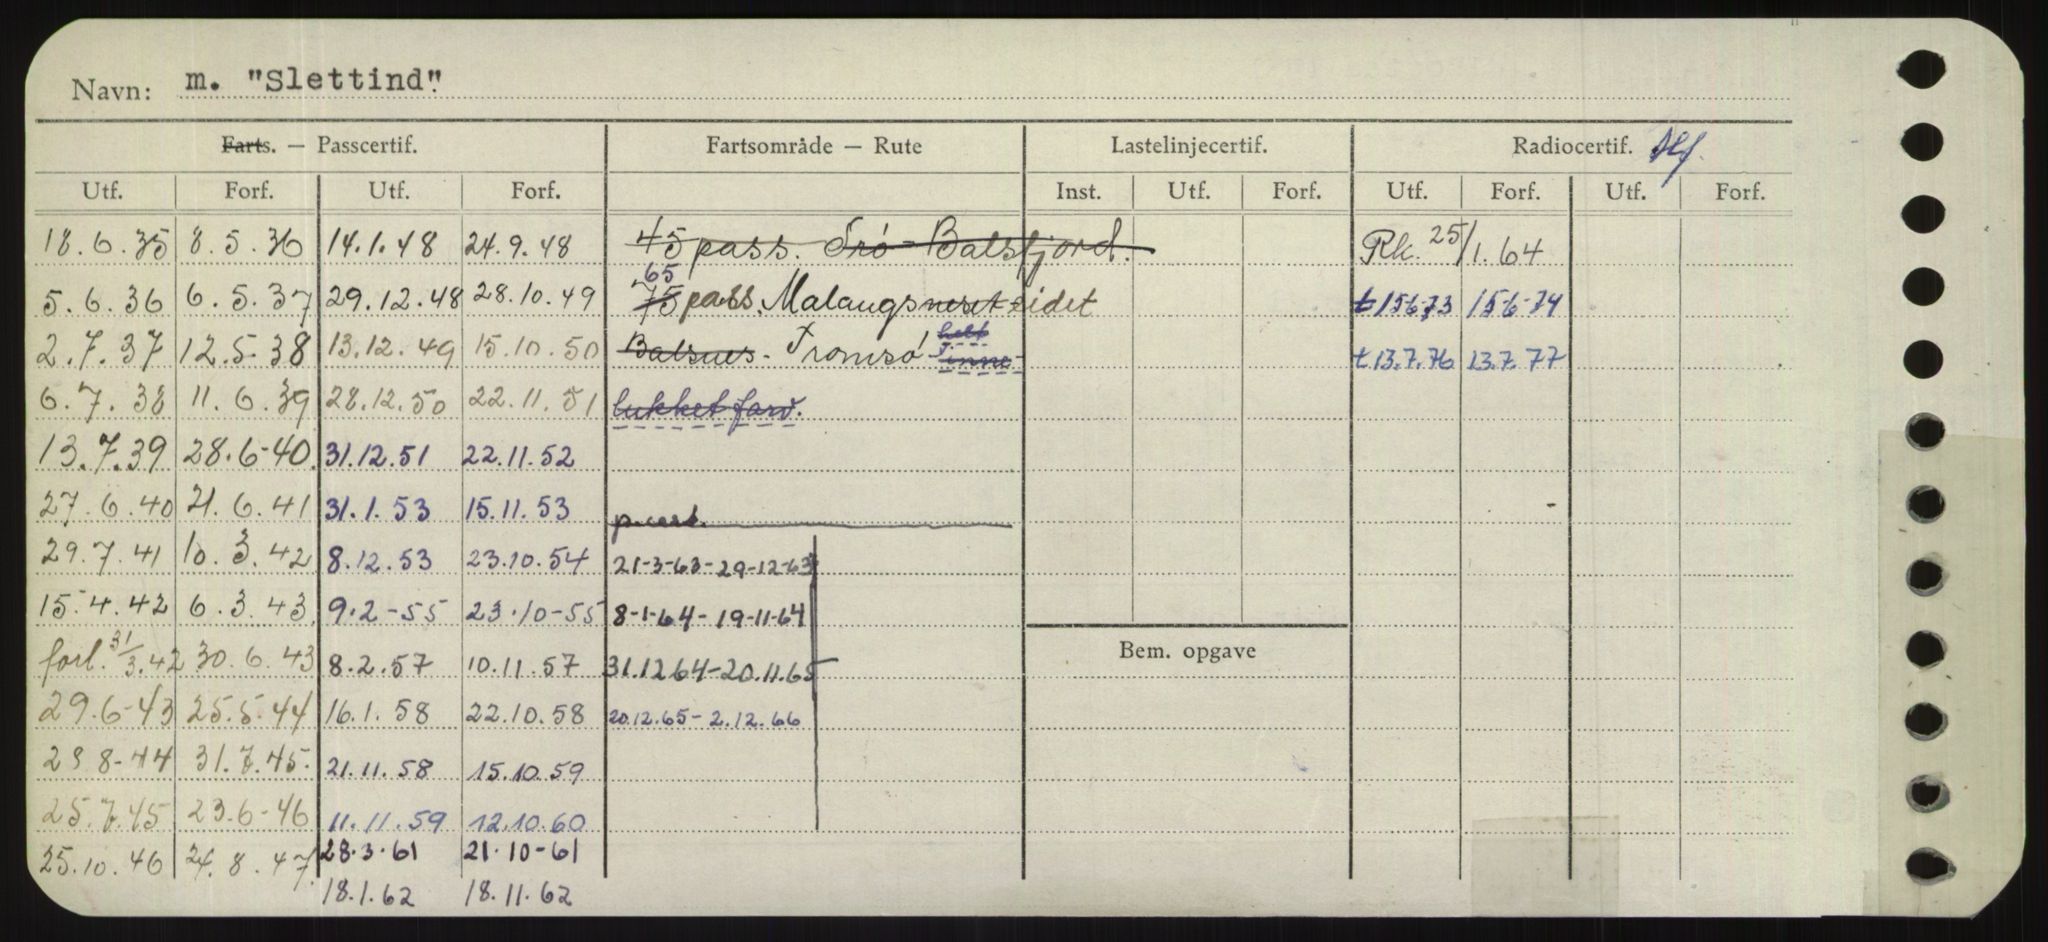 Navn: m. "Slettind".
Farts. — Passcertif. Fartsområde — Rute Lastelinjecertif. Radiocertif.
Utf. Forf. Utf. Forf. Inst. Utf. Forf. Utf. Forf. Utf. Forf.
18.6.35 8.5.36 14.1.48 24.9.48 45 pass. Trø - Balsfjord. Rk. 25/1.64
65
5.6.36 6.5.37 29.12.48 28.10.49 75 pass. Malangsneset-eidet t 15-6-73 15-6-74
helt
2.7.37 12.5.38 13.12.49 15.10.50 Balsnes - Tromsø i inne- t 13.7.76 13.7.77
6.7.38 11.6.39 28.12.50 22.11.51 lukket farv.
13.7.39 28.6-40. 31.12.51 22.11.52
27.6.40 21.6.41 31.1.53 15.11.53 p.cert.
29.7.41 10.3.42 8.12.53 23.10.54 21-3-63-29-12-63
15.4.42 6.3.43. 9.2-55 23.10-55 8-1-64-19-11-64
forl. 31/3.42 30.6.43 8.2.57 10.11.57 31.12 64-20.11.65 Bem. opgave
29.6-43 25.5.44 16.1.58 22.10.58 20.12.65-2.12.66
23 8-44 31.7.45- 21.11.58 15.10.59
25.7.45 23.6-46 11.11.59 12.10.60
25.10.46 24.8.47. 28.3.61 21.10-61
18.1.62 18.11.62